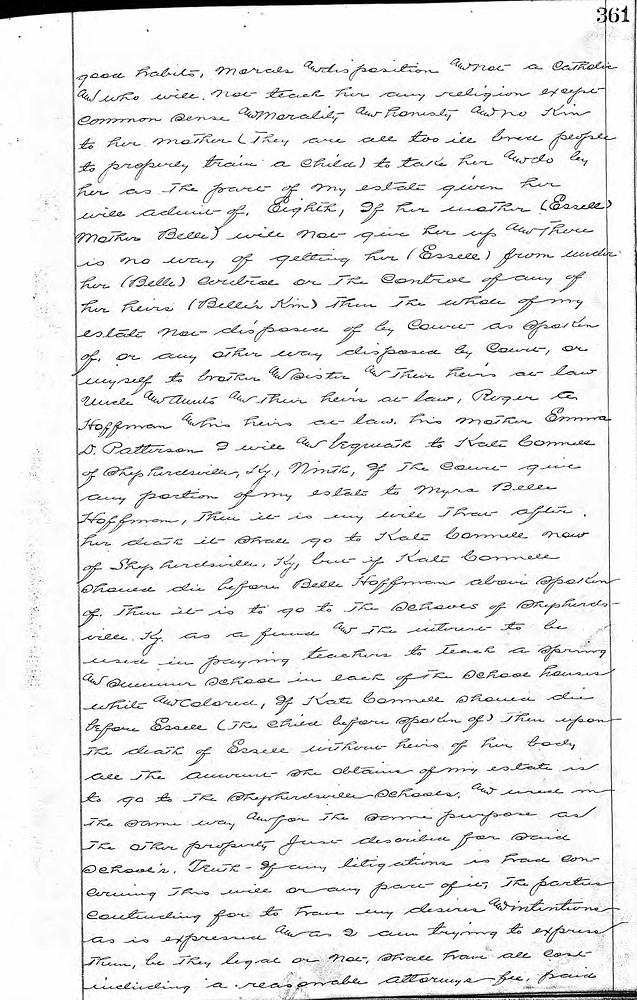 361
good habits, morals and disposition and not a Catholic
and who will not teach her any religion except
Common sense and Morality and honesty and no Kin
to her mother (They are all too ill bred people
to properly train a child) to take her and do by
her as the part of my estate given her
will admit of. Eighth, If her mother (Essell)
Mother Belle) will not give her up and there
is no way of getting her (Essell) from under
her (Belle) Control or the Control of any of
her heirs (Belle's Kin) then the whole of my
estate not disposed of by Court as spoken
of, or any other way disposed by Court, or
myself to brother and sister and their heirs at law
Uncle and Aunts and their heirs at law, Roger
Hoffman and his heirs at law. his mother Emma
D. Patterson I will and bequeath to Kate Connell
of Shepherdsville, Ky, Ninth, If the Court give
any portion of my estate to Myra Belle
Hoffman, then it is my will that after
her death it shall go to Kate Connell now
of Shepherdsville, Ky, but if Kate Connell
should die before Belle Hoffman above spoken
of. Then it is to go to the Schools of Shepherds-
ville. Ky. as a fund and the interest to be
used in paying teachers to teach a Spring
and Summer School in each of the School houses
white and Colored, If Kate Connell should die
before Essell (the child before spoken of) then upon
the death of Essell without heirs of her body
all the amount she obtains of my estate is
to go to the Shepherdsville Schools, and used in
the same way and for the same purpose as
the other property Just described for said
School's. Tenth - If any litigations is had con-
cerning this will or any part of it, The parties
contending for to have my desires and intentions
as is expressed and as I am trying to express
them, be they legal or not, shall have all cost
including a reasonable attorneys fee, paid